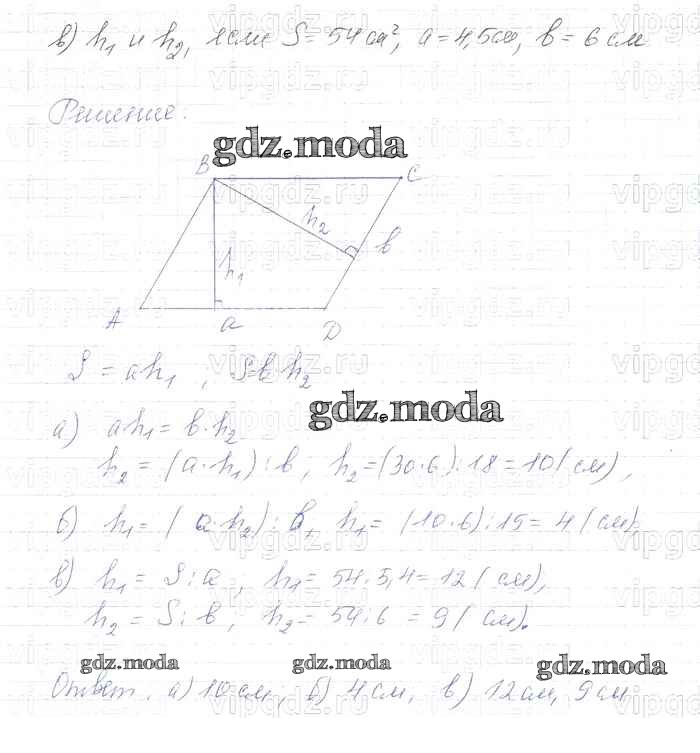 в) h₁ и h₂, если S = 54 см², a = 4,5 см, b = 6 см
Решение:
gdz.moda
B C
h₂
b
h₁
A a D
S = ah₁ ; S = b h₂
gdz.moda
а) ah₁ = b·h₂
h₂ = (a·h₁) : b, h₂ = (30·6) : 18 = 10 (см),
б) h₁ = (a·h₂) : b, h₁ = (10·6) : 15 = 4 (см),
в) h₁ = S : a, h₁ = 54·5,4 = 12 (см),
h₂ = S : b, h₂ = 54 : 6 = 9 (см).
gdz.moda gdz.moda gdz.moda
Ответ. а) 10 см; б) 4 см, в) 12 см, 9 см
vipgdz.ru